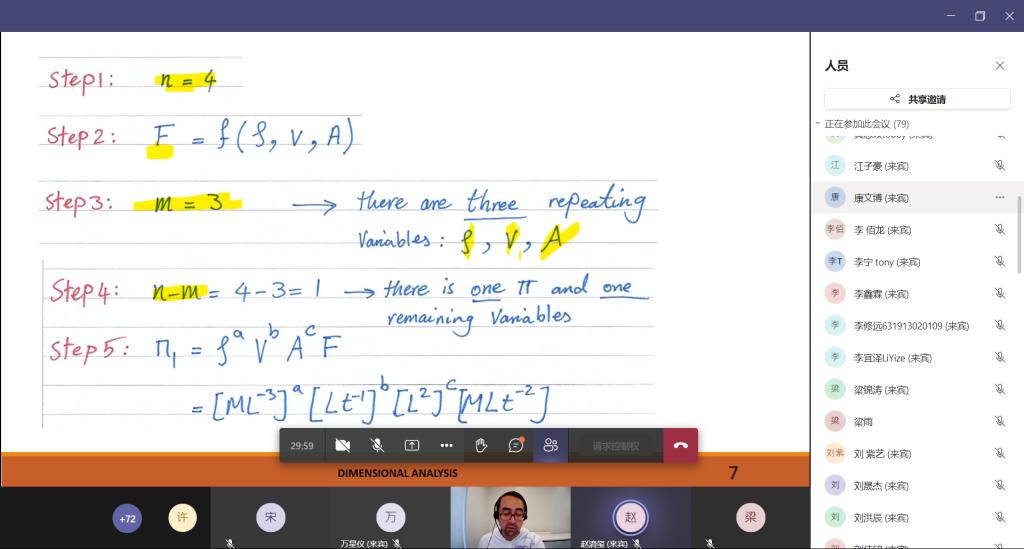 Step1: n = 4
Step2: F = f(ρ, V, A)
Step3: m = 3 → there are three repeating
Variables: ρ, V, A
Step4: n-m = 4-3=1 → there is one π and one
remaining Variables
Step5: Π₁ = ρᵃ Vᵇ Aᶜ F
= [ML⁻³]ᵃ [Lt⁻¹]ᵇ [L²]ᶜ [MLt⁻²]
29:59
请求控制权
DIMENSIONAL ANALYSIS
7
+72
许
宋
万
万星仪 (来宾)
赵
梁
人员
共享邀请
正在参加此会议 (79)
江 江子豪 (来宾)
唐 康文博 (来宾)
李佰 李 佰龙 (来宾)
李T 李宁 tony (来宾)
李 李鑫霖 (来宾)
李 李修远631913020109 (来宾)
李 李宜泽LiYize (来宾)
梁 梁锦涛 (来宾)
梁 梁雨
刘紫 刘 紫艺 (来宾)
刘 刘晟杰 (来宾)
刘 刘洪辰 (来宾)